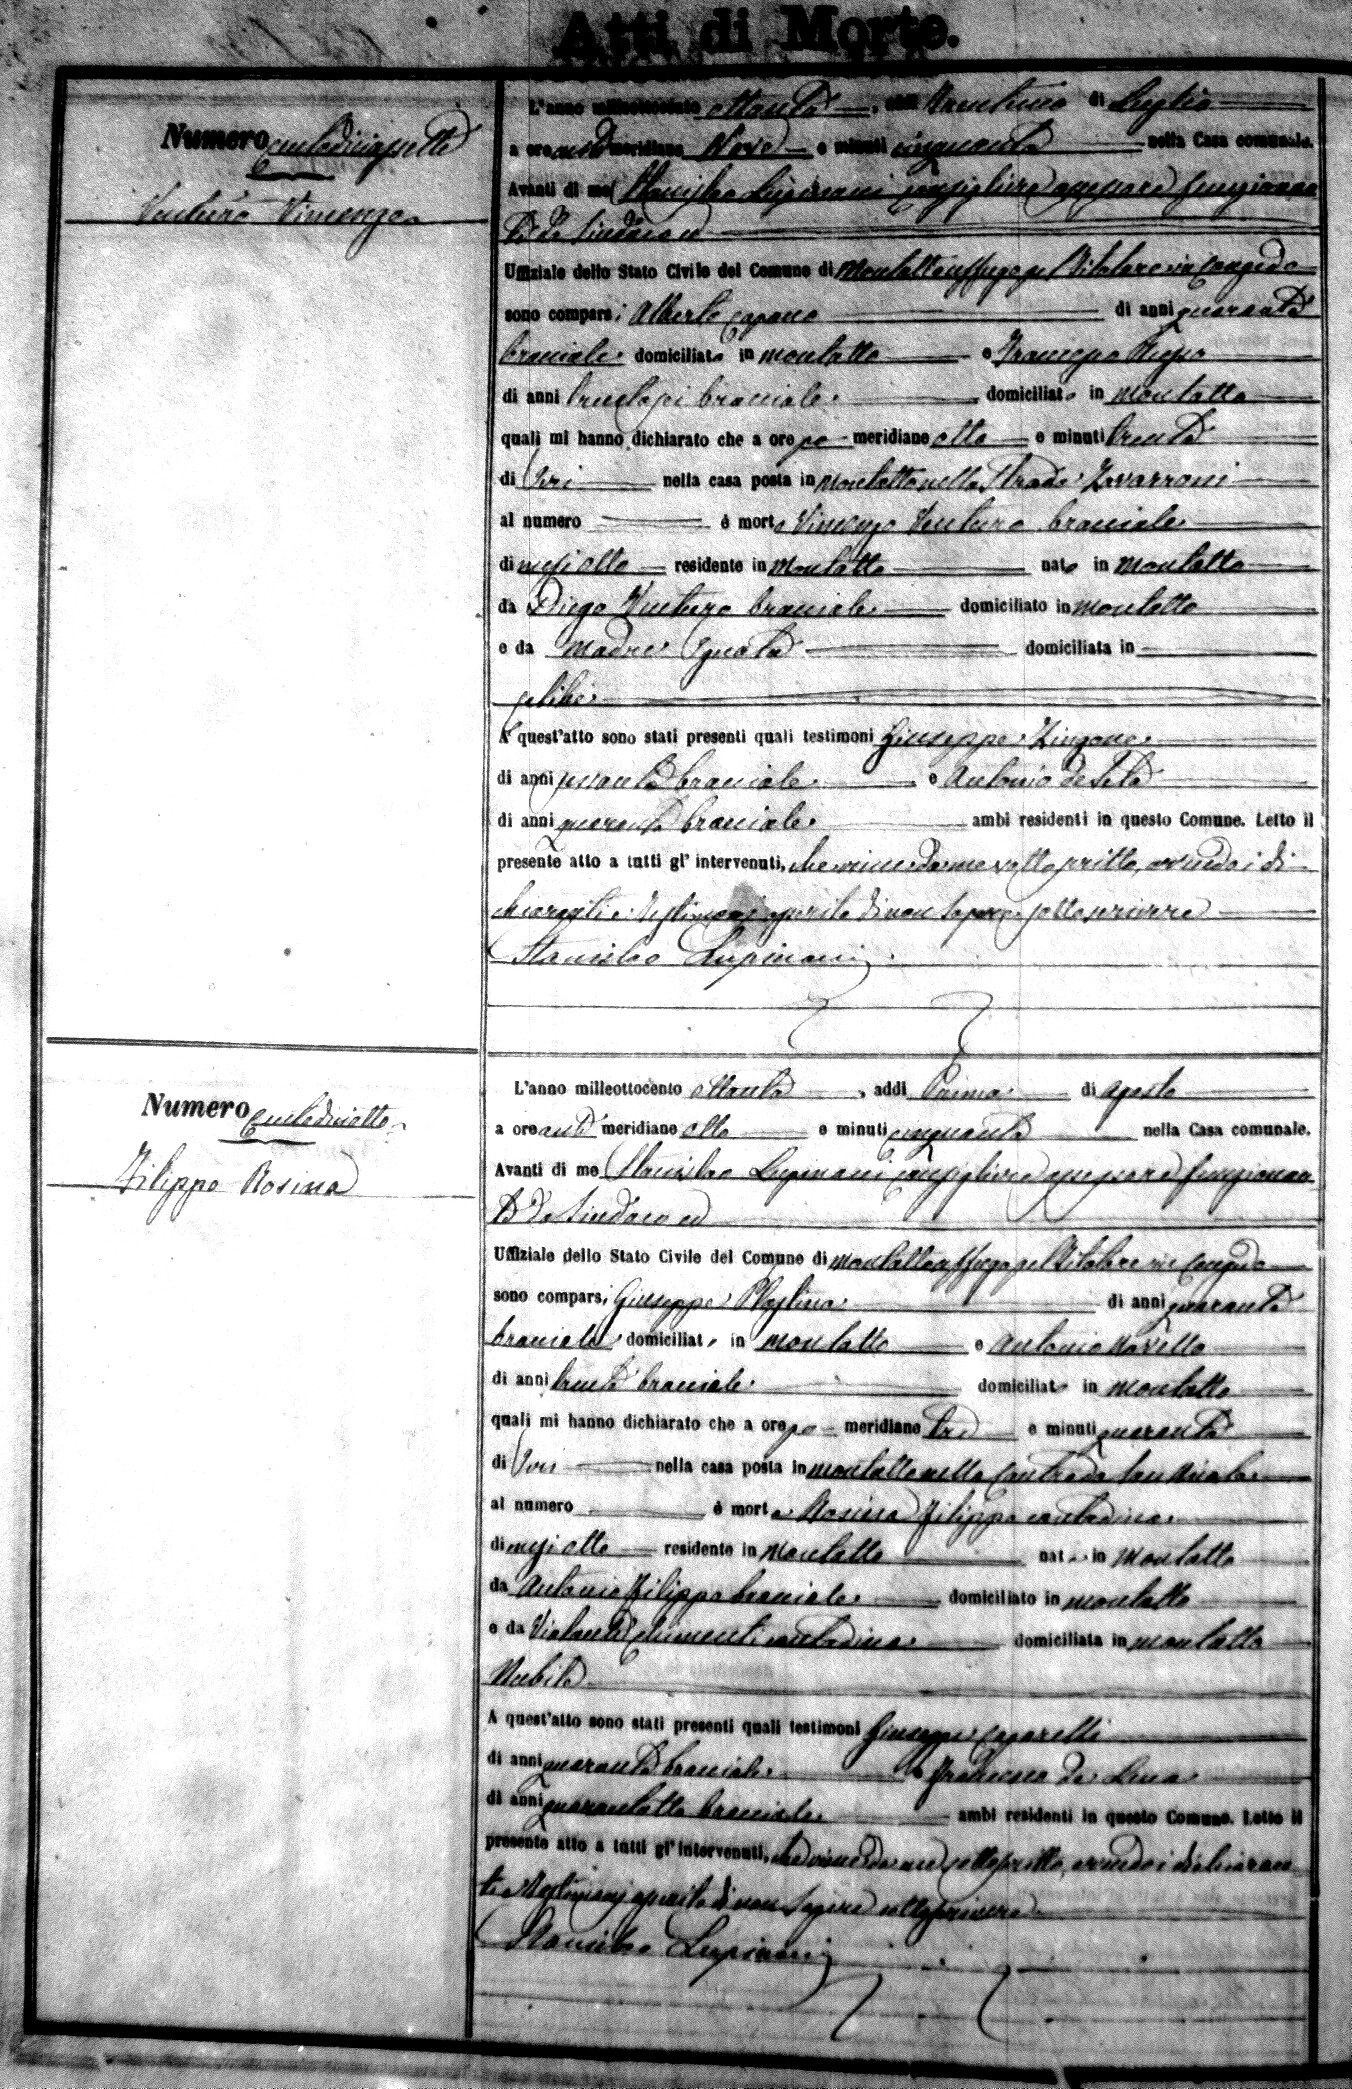 Atti di Morte.
Numero centodiciassette
Venturo Vincenzo
L'anno milleottocento ottanta, addi trentuno di Luglio
a ore anti meridiane Nove e minuti cinquanta nella Casa comunale.
Avanti di me Stanislao Lupinacci Consigliere assessore funzionan
te da Sindaco ed
Uffiziale dello Stato Civile del Comune di Montalto uffugo pel Titolare in congedo
sono comparsi Alberto Capano di anni quaranta
bracciale domiciliato in Montalto e Francesco
di anni trentasei bracciale domiciliato in Montalto
quali mi hanno dichiarato che a ore po meridiane otto e minuti trenta
di Ieri nella casa posta in Montalto nella Strada Zavarroni
al numero è morto Vincenzo Venturo bracciale
di mesi otto residente in Montalto nato in Montalto
da Diego Venturo bracciale domiciliato in Montalto
e da Madre Ignota domiciliata in
celibe
A quest'atto sono stati presenti quali testimoni Giuseppe Zingone
di anni sessanta bracciale e Antonio de Seta
di anni quaranta bracciale ambi residenti in questo Comune. Letto il
presente atto a tutti gl' intervenuti, che viene da me sottoscritto, avendo i di
chiaranti e testimoni asserito di non sapere sottoscrivere
Stanislao Lupinacci
Numero Centodiciotto
Filippo Rosina
L'anno milleottocento ottanta, addi Primo di Agosto
a ore anti meridiane otto e minuti cinquanta nella Casa comunale.
Avanti di me Stanislao Lupinacci Consigliere assessore funzionan
te da Sindaco ed
Uffiziale dello Stato Civile del Comune di Montalto uffugo pel Titolare in Congedo
sono comparsi Giuseppe Plastina di anni quaranta
bracciale domiciliato in Montalto e Antonio Novello
di anni trenta bracciale domiciliato in Montalto
quali mi hanno dichiarato che a ore po meridiane tre e minuti quaranta
di Ieri nella casa posta in Montalto nella Contrada San
al numero è morta Rosina Filippo contadina
di mesi otto residente in Montalto nata in Montalto
da Antonio Filippo bracciale domiciliato in Montalto
e da Violante Chimenti contadina domiciliata in Montalto
Nubile
A quest'atto sono stati presenti quali testimoni Giuseppe Caparelli
di anni quaranta bracciale e Francesco de Luca
di anni quarantotto bracciale ambi residenti in questo Comune. Letto il
presente atto a tutti gl' intervenuti, che viene da me sottoscritto, avendo i dichiaran
ti e testimoni asserito di non sapere sottoscrivere
Stanislao Lupinacci